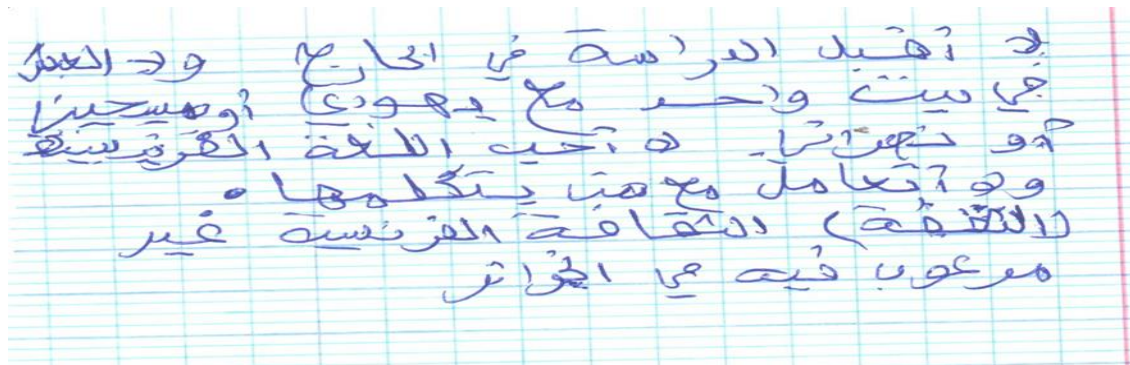 لا أقبل الدراسة في الخارج ولا العمل
في بيت واحد مع يهودي أو مسحيين
أو نصراني. لا أحب اللغة الفرنسية
ولا أتعامل مع من يتكلمها.
(الثقفة) الثقافة الفرنسية غير
مرغوب فيه في الجزائر